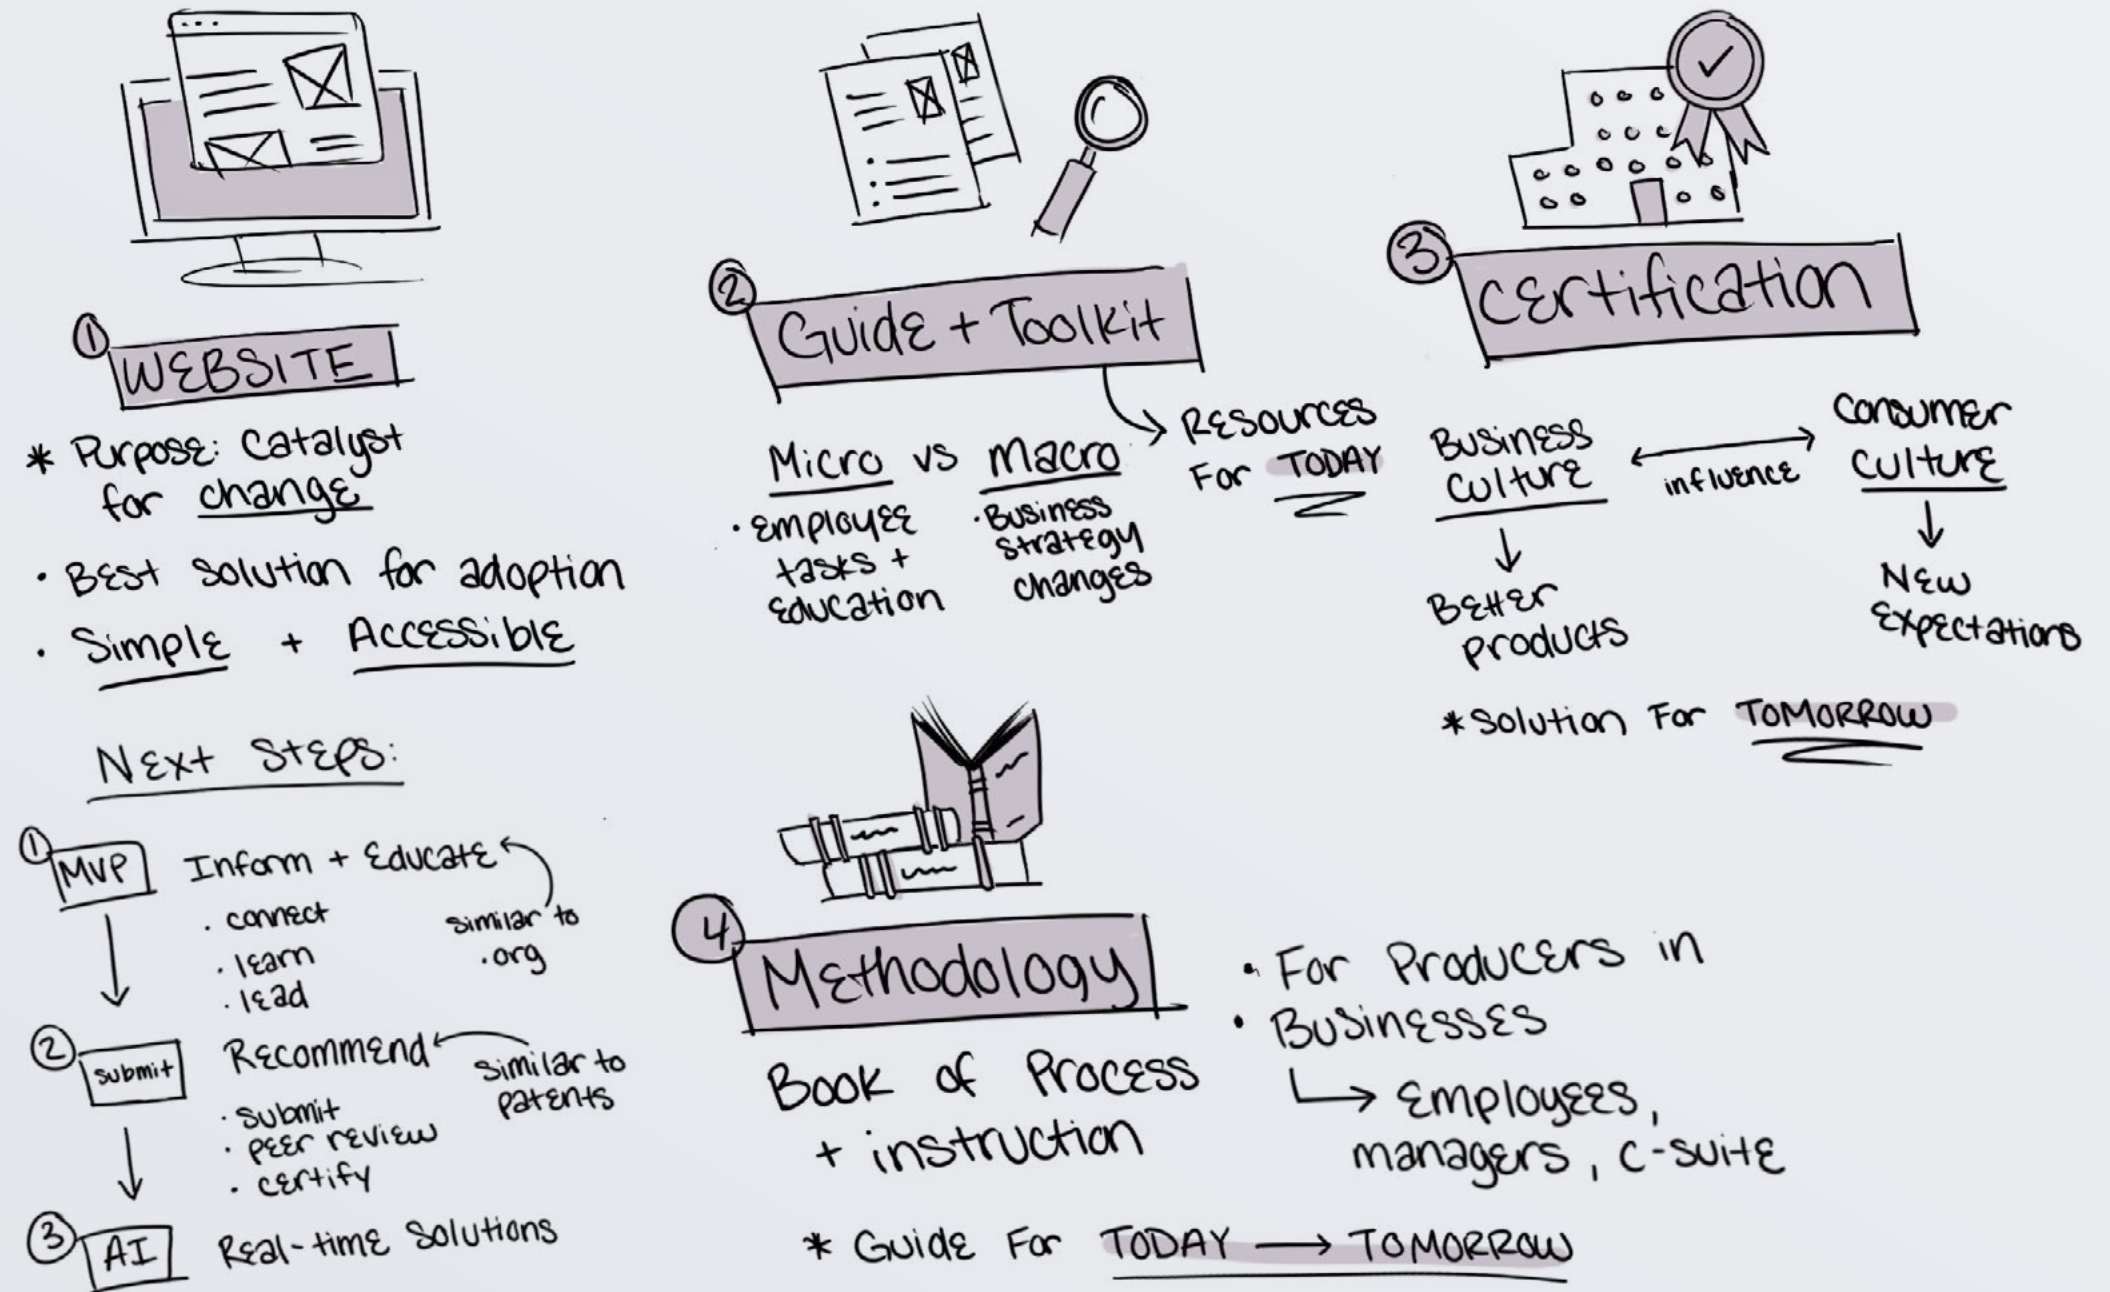 ① WEBSITE
* Purpose: Catalyst
for change
· Best solution for adoption
· Simple + Accessible
Next Steps:
① MVP
Inform + Educate
· connect
· learn
· lead
similar to
.org
② submit
Recommend
· submit
· peer review
· certify
similar to
patents
③ AI
Real-time solutions
② Guide + Toolkit
Resources
For TODAY
Micro vs Macro
· Employee
tasks +
Education
· Business
strategy
changes
③ Certification
Business
Culture
influence
Consumer
Culture
Better
products
New
Expectations
* Solution For TOMORROW
④ Methodology
Book of Process
+ instruction
· For Producers in
· Businesses
Employees,
managers, c-suite
* Guide For TODAY → TOMORROW